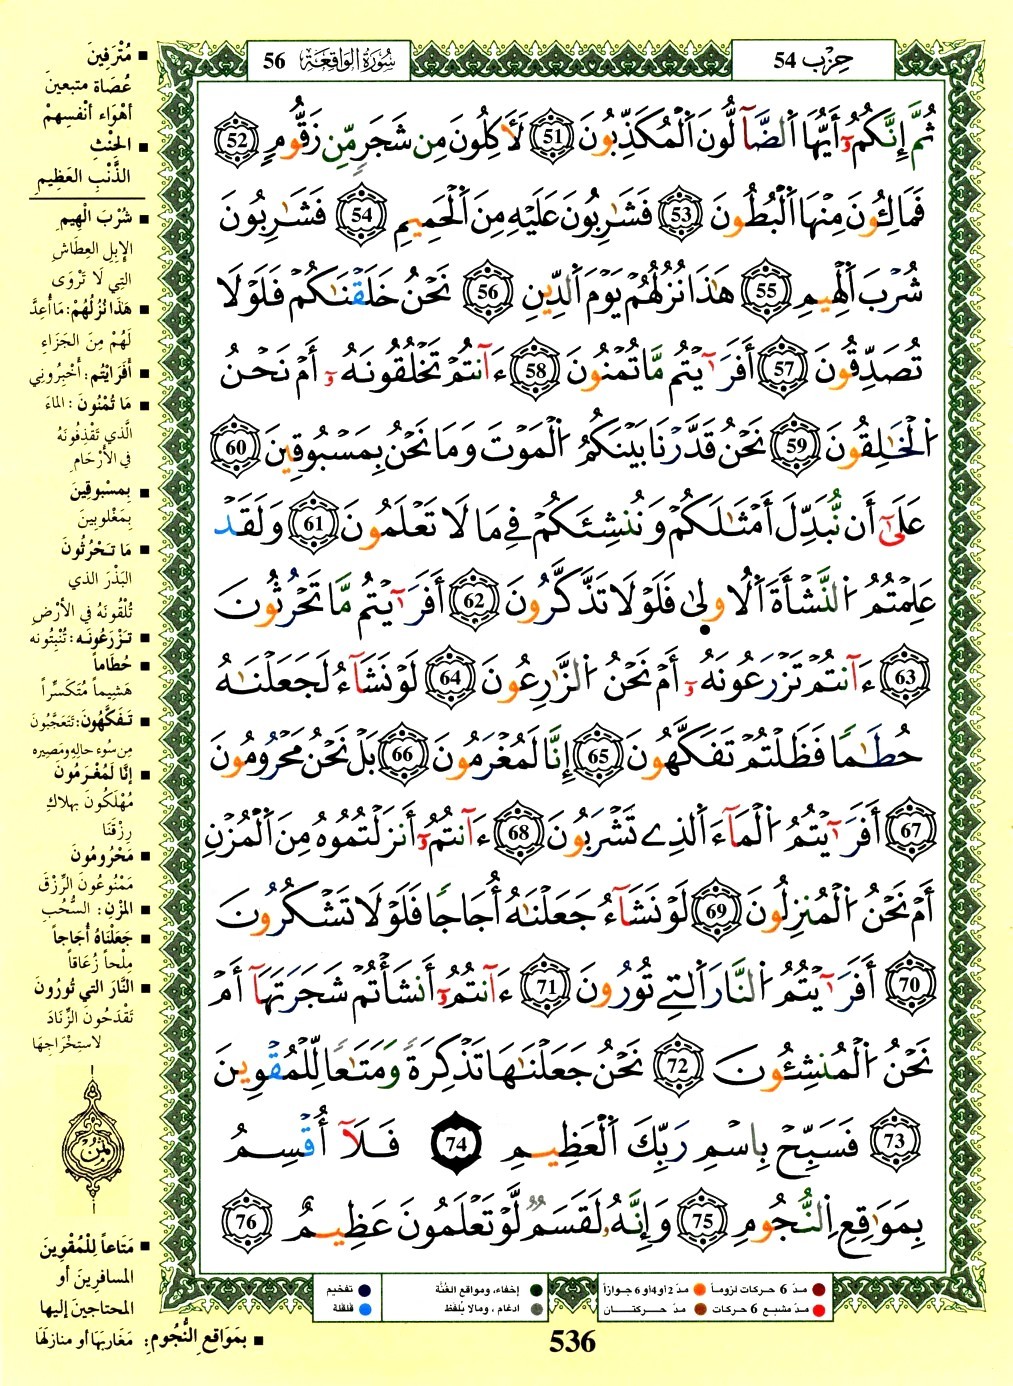 سُورَةُ الوَاقِعَة 56
حِزْب 54
ثُمَّ إِنَّكُمُۥٓ أَيُّهَا اَ۬لضَّآلُّونَ اَ۬لْمُكَذِّبُونَ 51 لَأٓكِلُونَ مِن شَجَرٖ مِّن زَقُّومٖ 52
فَمَالِـُٔونَ مِنْهَا اَ۬لْبُطُونَ 53 فَشَٰرِبُونَ عَلَيْهِ مِنَ اَ۬لْحَمِيمِ 54 فَشَٰرِبُونَ
شُرْبَ اَ۬لْهِيمِ 55 هَٰذَا نُزُلُهُمْ يَوْمَ اَ۬لدِّينِ 56 نَحْنُ خَلَقْنَٰكُمْ فَلَوْلَا
تُصَدِّقُونَ 57 أَفَرَٰٓيْتُم مَّا تُمْنُونَ 58 ءَآنتُمْ تَخْلُقُونَهُۥٓ أَمْ نَحْنُ
اُ۬لْخَٰلِقُونَ 59 نَحْنُ قَدَّرْنَا بَيْنَكُمُ اُ۬لْمَوْتَ وَمَا نَحْنُ بِمَسْبُوقِينَ 60
عَلَىٰٓ أَن نُّبَدِّلَ أَمْثَٰلَكُمْ وَنُنشِئَكُمْ فِے مَا لَا تَعْلَمُونَ 61 وَلَقَدْ
عَلِمْتُمُ اُ۬لنَّشْأَةَ اَ۬لُاولَىٰ فَلَوْلَا تَذَّكَّرُونَ 62 أَفَرَٰٓيْتُم مَّا تَحْرُثُونَ
63 ءَآنتُمْ تَزْرَعُونَهُۥٓ أَمْ نَحْنُ اُ۬لزَّٰرِعُونَ 64 لَوْ نَشَآءُ لَجَعَلْنَٰهُ
حُطَٰمٗا فَظَلْتُمْ تَفَكَّهُونَ 65 إِنَّا لَمُغْرَمُونَ 66 بَلْ نَحْنُ مَحْرُومُونَ
67 أَفَرَٰٓيْتُمُ اُ۬لْمَآءَ اَ۬لذِے تَشْرَبُونَ 68 ءَآنتُمُۥٓ أَنزَلْتُمُوهُ مِنَ اَ۬لْمُزْنِ
أَمْ نَحْنُ اُ۬لْمُنزِلُونَ 69 لَوْ نَشَآءُ جَعَلْنَٰهُ أُجَاجٗا فَلَوْلَا تَشْكُرُونَ
70 أَفَرَٰٓيْتُمُ اُ۬لنَّارَ اَ۬لتِے تُورُونَ 71 ءَآنتُمُۥٓ أَنشَأْتُمْ شَجَرَتَهَآ أَمْ
نَحْنُ اُ۬لْمُنشِـُٔونَ 72 نَحْنُ جَعَلْنَٰهَا تَذْكِرَةٗ وَمَتَٰعٗا لِّلْمُقْوِينَ
73 فَسَبِّحْ بِاسْمِ رَبِّكَ اَ۬لْعَظِيمِ 74 فَلَآ أُقْسِمُ
بِمَوَٰقِعِ اِ۬لنُّجُومِ 75 وَإِنَّهُۥ لَقَسَمٞ لَّوْ تَعْلَمُونَ عَظِيمٌ 76
■ مُتْرَفِينَ
عُصَاة متبعينَ
أهْوَاء أنْفسِهِمْ
■ الحِنْثِ
الذَّنْبِ العَظِيمِ
■ شُرْبَ الْهِيمِ
الإبِلِ العِطَاشِ
التِي لَا تَرْوَى
■ هَذَا نُزُلُهُمْ: مَا أُعِدَّ
لَهُمْ مِنَ الجَزَاءِ
■ أَفَرَايْتُم: أَخْبِرُونِي
■ مَا تُمْنُونَ: الماءَ
الَّذِي تَقْذِفُونَهُ
فِي الأَرْحَامِ
■ بِمسْبوقِينَ
بِمَغْلوبِينَ
■ مَا تَحْرُثُونَ
البَذْرَ الذي
تُلْقُونَهُ فِي الأرْضِ
■ تَزْرَعُونَه: تُنْبِتُونَه
■ حُطَاماً
هَشِيماً مُتَكَسِّراً
■ تَفَكَّهُون: تَتَعَجَّبُونَ
مِن سُوءِ حالِهِ ومَصِيرِه
■ إنَّا لَمُغْرَمُونَ
مُهْلَكُونَ بِهلاكِ
رِزْقنَا
■ مَحْرُومُونَ
مَمْنُوعُونَ الرِّزْقَ
■ المُزْنِ: السُّحُبِ
■ جَعَلْنَاهُ أُجَاجاً
مِلْحاً زُعَاقاً
■ النَّارَ التي تُورُونَ
تَقْدَحُونَ الزِّنَادَ
لاستِخْرَاجِهَا
ثمن
■ مَتَاعاً لِلْمُقْوِينَ
المسافرِينَ أو
المحتاجينَ إليها
■ بمَوَاقعِ النُّجُوم: مَغَاربَهَا أو منازلهَا
مدّ 6 حركات لزوماً مدّ 2 أو 4 أو 6 جوازاً إخفاء، ومواقع الغُنَّة تفخيم
مدّ مشبع 6 حركات مدّ حركتــان ادغام، ومالا يُلفَظ قلقلة
536